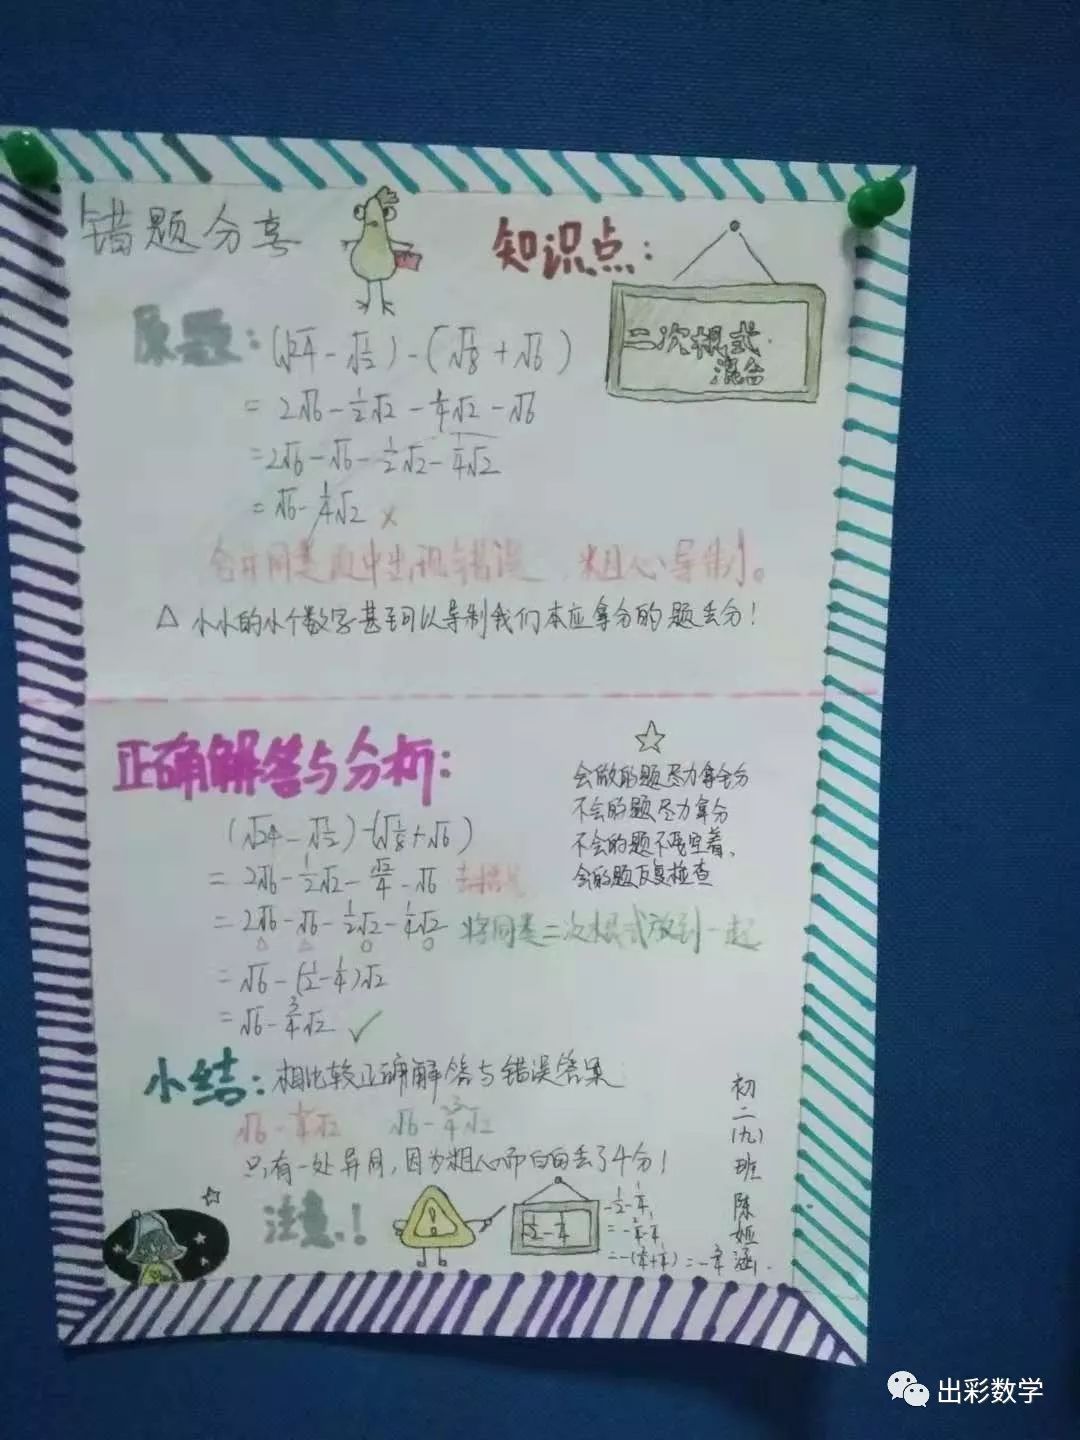 错题分享
知识点：
二次根式
混合
原题：(√24 - √½) - (√⅛ + √6)
= 2√6 - ½√2 - ¼√2 - √6
= 2√6 - √6 - ½√2 - ¼√2
= √6 - ¼√2 ×
合并同类项中出现错误，粗心导制。
△ 小小的小个数字甚至可以导制我们本应拿分的题丢分！
正确解答与分析：
☆
会做的题尽力拿全分
不会的题尽力拿分
不会的题不要空着、
会的题反复检查
(√24 - √½) - (√⅛ + √6)
= 2√6 - ½√2 - √2/4 - √6 去括号
= 2√6 - √6 - ½√2 - ¼√2 将同类二次根式放到一起
= √6 - (½ - ¼)√2
= √6 - ¾√2 ✓
小结：相比较正确解答与错误答案
√6 - ¼√2 √6 - ¾√2
只有一处异同，因为粗心而白白丢了4分！
注意！！
-½ - ¼
-½ - ¼
= -2/4 - ¼
= -(2/4 + ¼) = -¾
初二(九)班陈姬涵
出彩数学